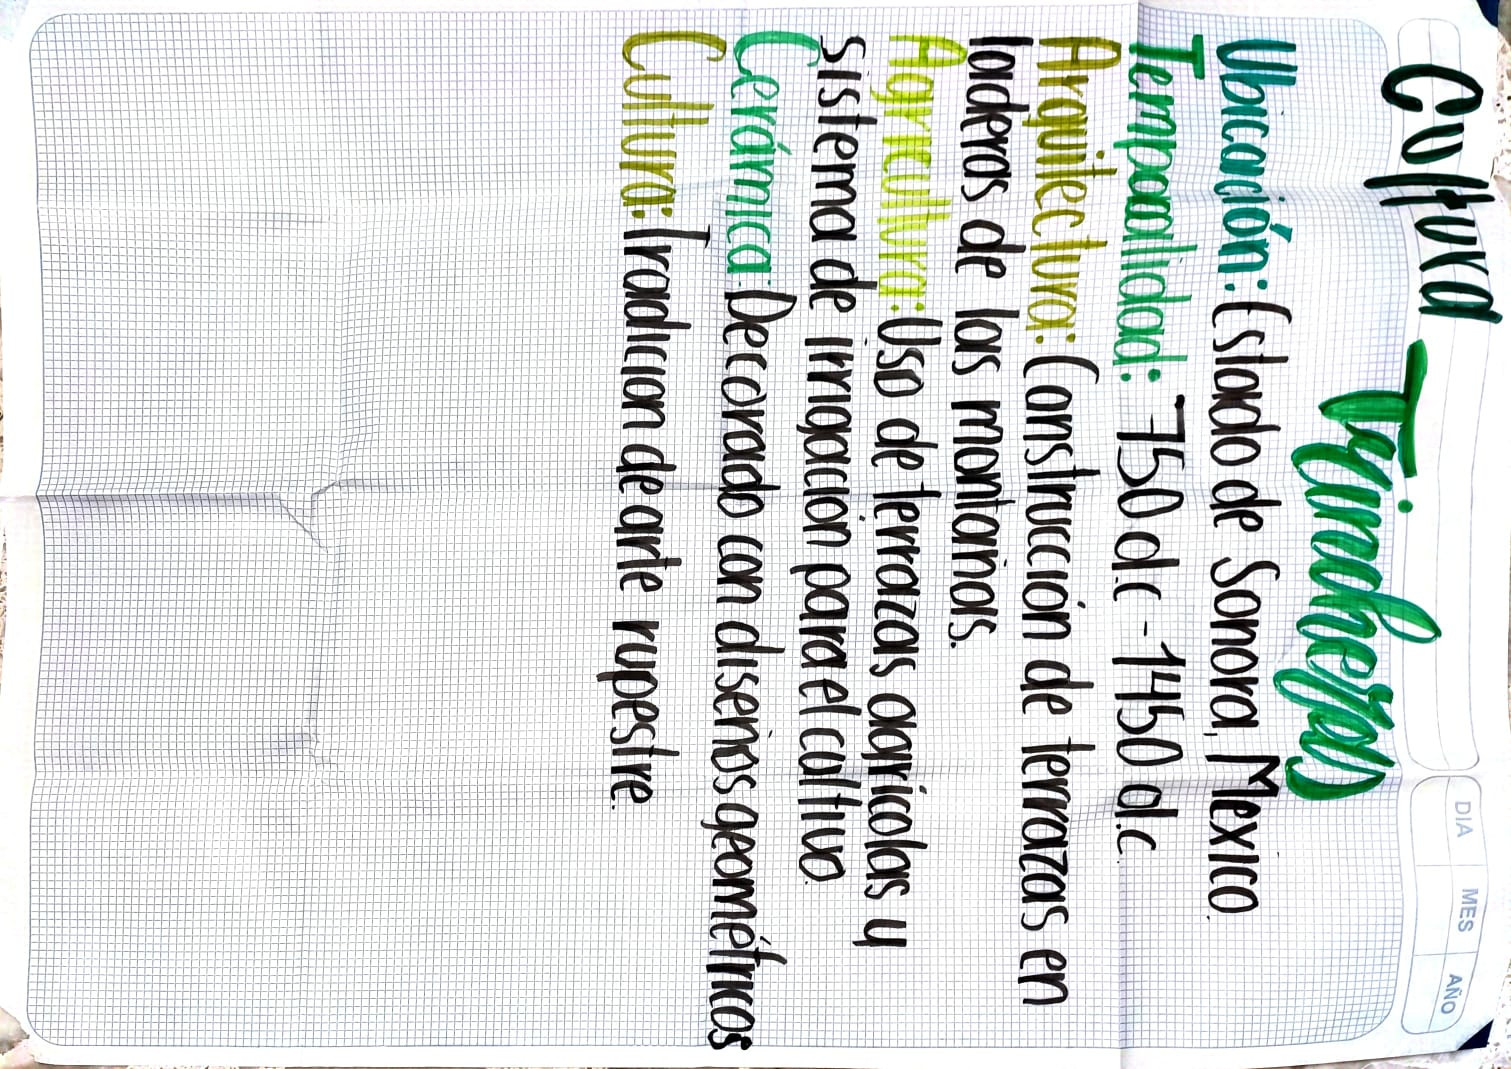 Cultura
Trincheras
Ubicación: Estado de Sonora, Mexico.
Temporalidad: 750 d.c - 1450 d.c.
Arquitectura: Construccion de terrazas en
laderas de las montañas.
Agricultura: Uso de terrazas agricolas y
sistema de irrigacion para el cultivo.
Cerámica: Decorado con diseños geométricos
Cultura: Tradicion de arte rupestre.
DIA
MES
AÑO